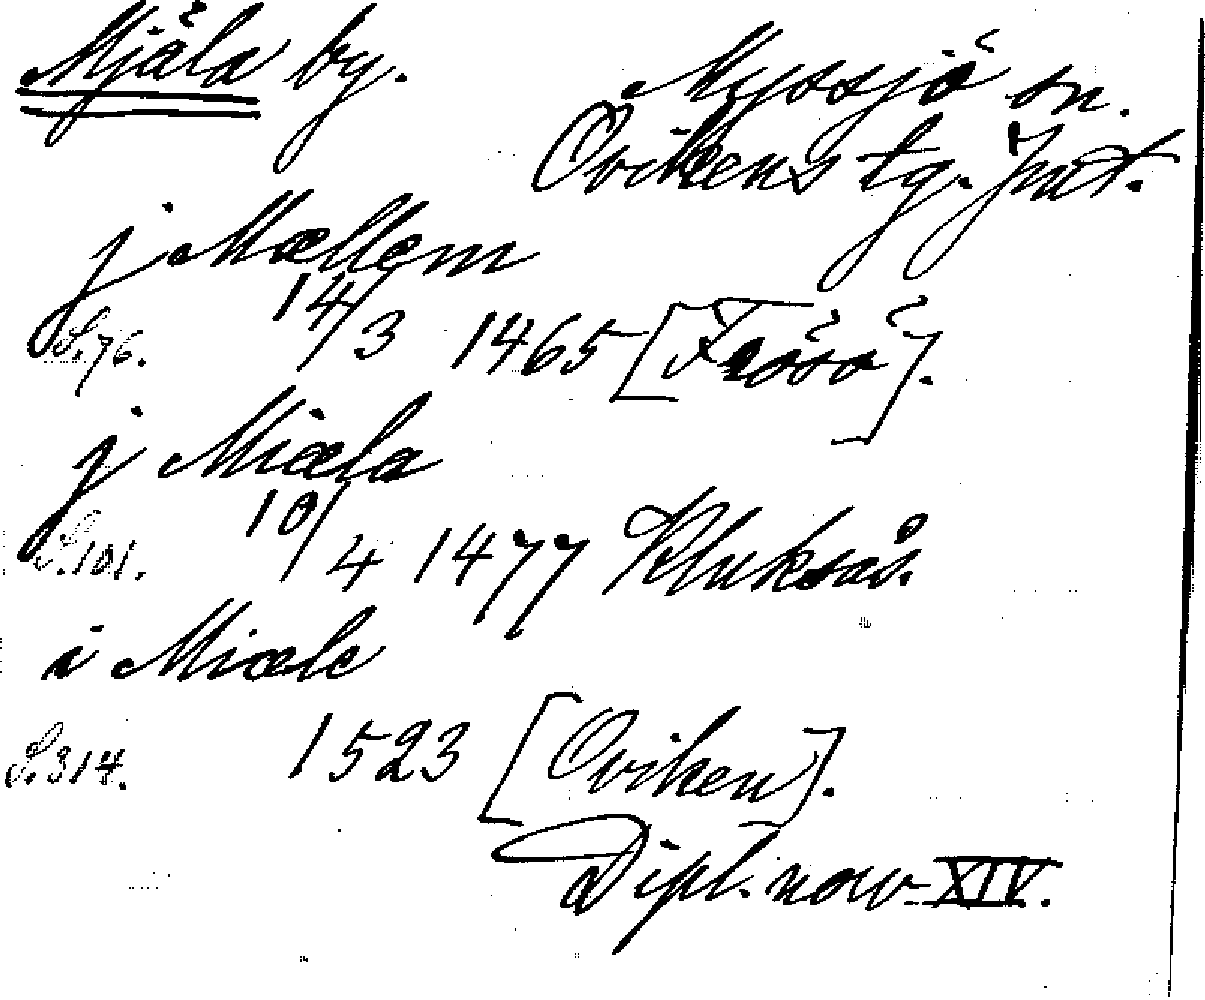 Mjäla by.
Myssjö sn.
Ovikens tg. Jmt.
j Mællem
S. 76. 14/3 1465 [Frösö].
j Miæla
S. 101. 10/4 1477 Kluksås.
i Miæle
S. 314. 1523 [Oviken].
Dipl. norv. XIV.